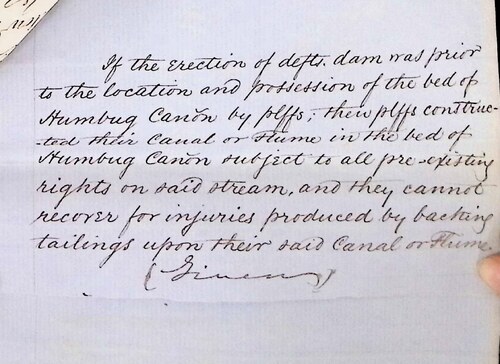 If the Erection of defts. dam was prior
to the location and possession of the bed of
Humbug Cañon by plffs; then plffs construc-
-ted their Canal or Flume in the bed of
Humbug Cañon subject to all pre-existing
rights on said stream, and they cannot
recover for injuries produced by backing
tailings upon their said Canal or Flume
(Given)